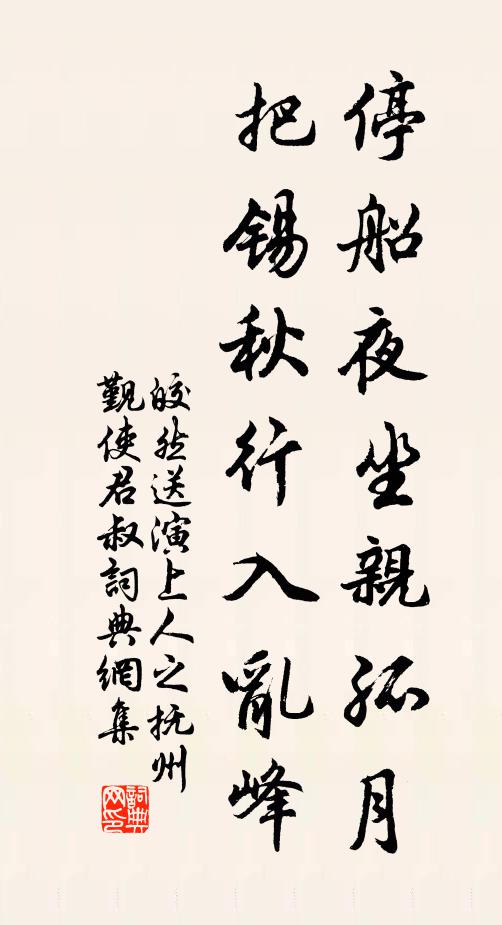 停船夜坐親孤月
把錫秋行入亂峰
皎然送演上人之抚州
覲使君叔詞典網集
詞典网印